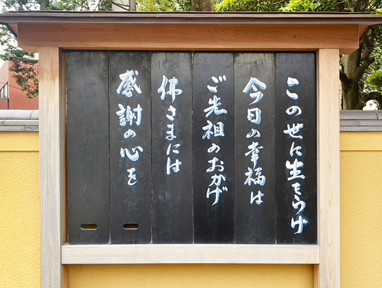 この世に生をうけ
今日の幸福は
ご先祖のおかげ
佛さまには
感謝の心を